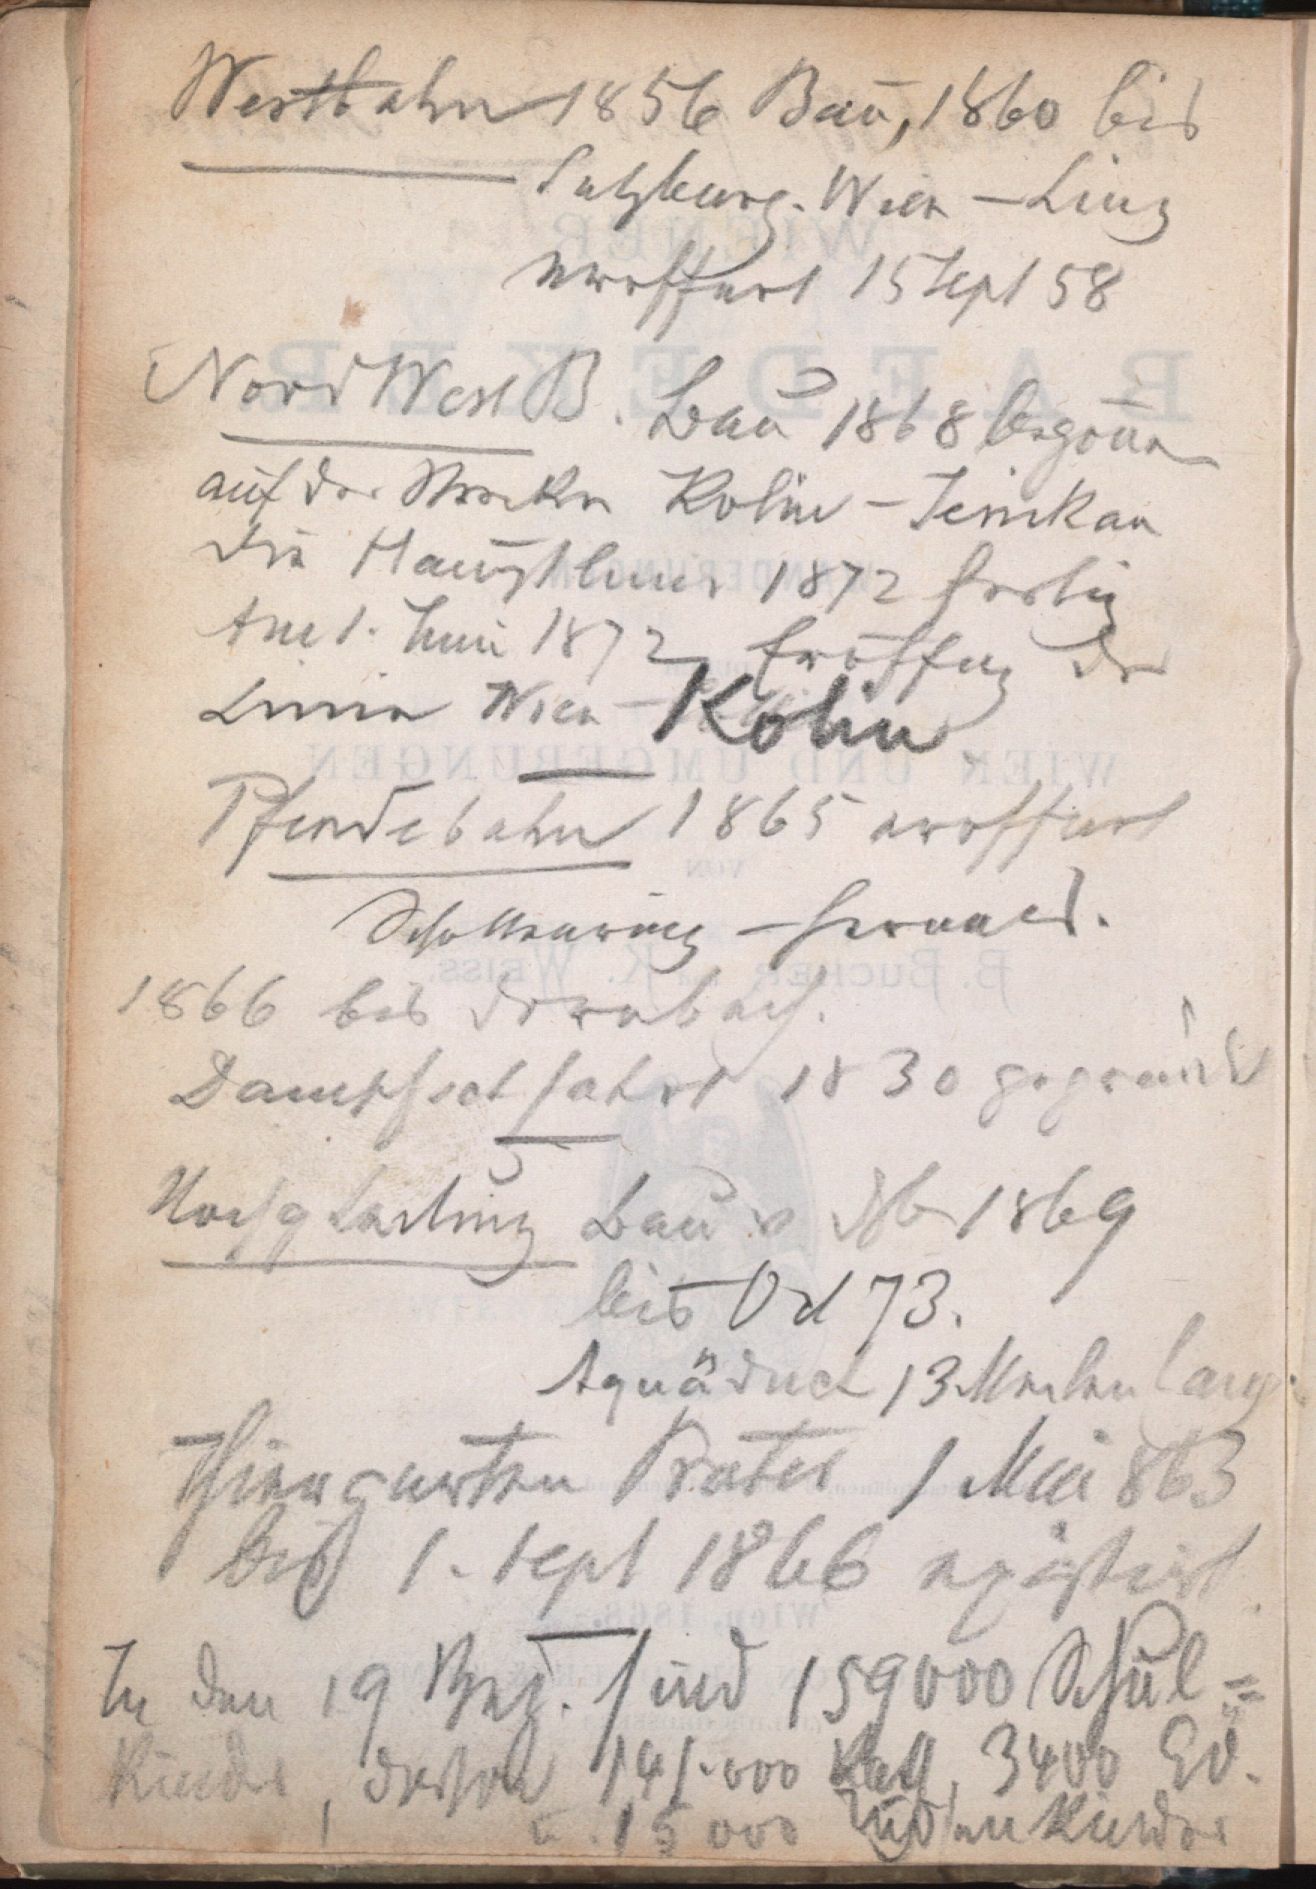 Westbahn 1856 Bau, 1860 bis
Salzburg. Wien – Linz
eroeffnet 15 Sept 58
NordWestB. Bau 1868 begonn
auf der Strecke Kolin – Jenikau
die Hauptlinie 1872 fertig
Am 1. Juni 1872 Eröffng der
Linie Wien – Kolin
Pferdebahn 1865 eroeffnet
Schottenring – Hernals.
1866 bis Dornbach.
Dampfschfahrt 1830 gegründet
Hochqu Bau v 1869
bis Oct 73.
Aquäduct 13 Meilen lang.
Thiergarten Prater 1 Mai 863
bis 1. Sept 1866 existirt
In den 19 Bez. sind 159000 Schul=
Kinder, davon 141.000 Kath, 3400 Ev.
u. 15000 Judenkinder